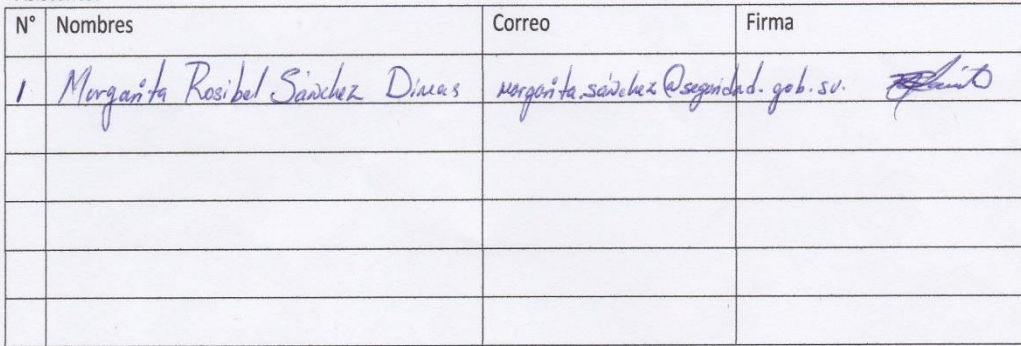 N° Nombres Correo Firma
1 Margarita Rosibel Sánchez Dimas margarita.sánchez@seguridad.gob.sv.